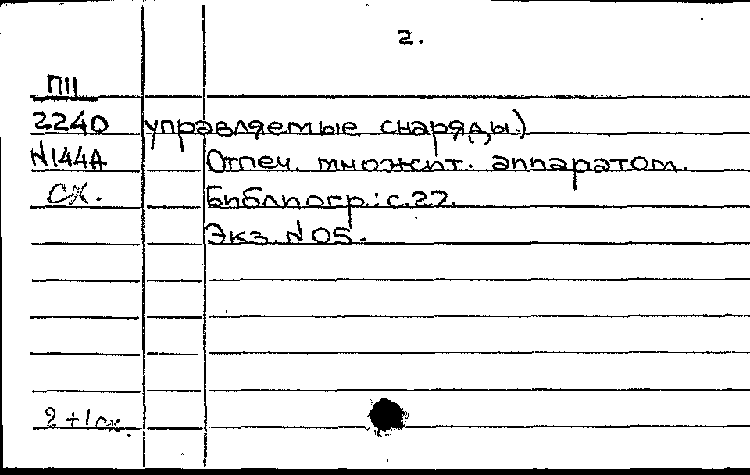 2.
П11
2240 управляемые снаряды.)
N144А Отпеч. множит. аппаратом.
сх. Библиогр.: с.22.
Экз. N 05.
2+1 сх.